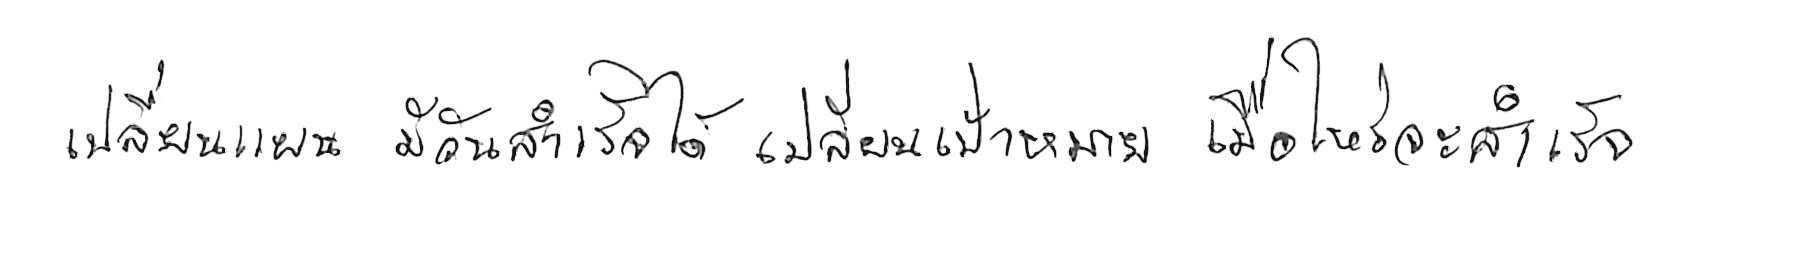 เปลี่ยนแผน มีวันสำเร็จได้ เปลี่ยนเป้าหมาย เมื่อไหร่จะสำเร็จ